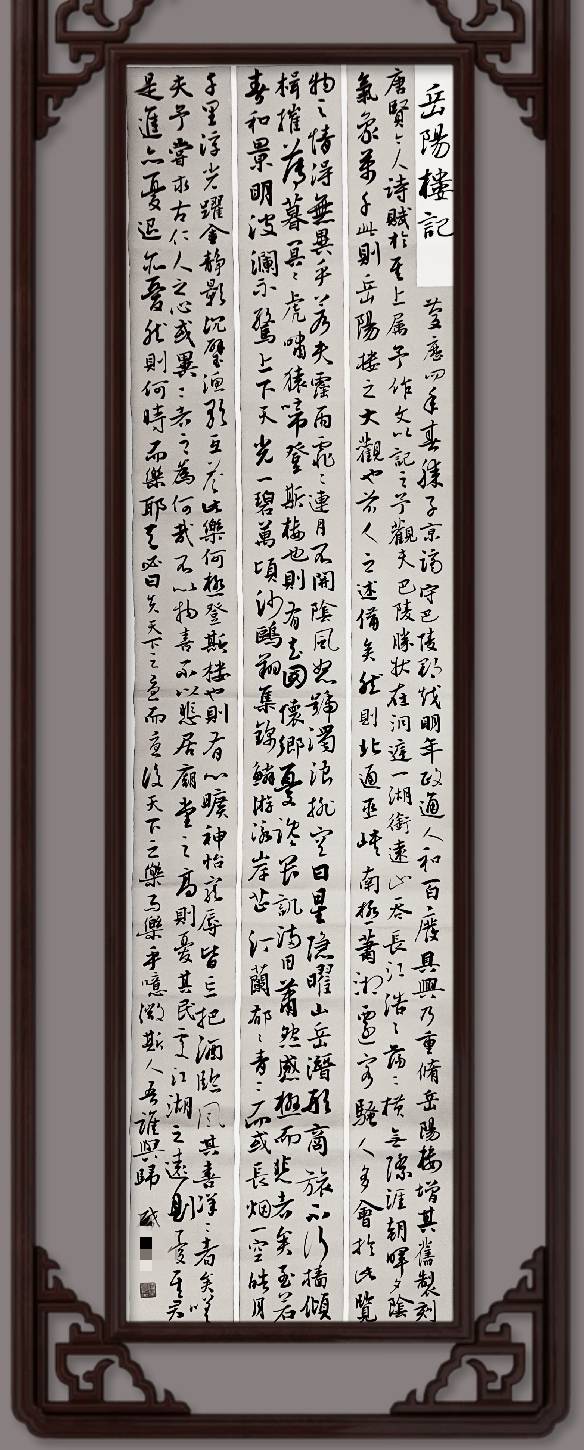 岳陽樓記
慶歷四年春滕子京謫守巴陵郡越明年政通人和百廢具興乃重脩岳陽樓增其舊製刻
唐賢今人詩賦於其上属予作文以記之予觀夫巴陵勝狀在洞庭一湖銜遠山吞長江浩〻蕩〻橫無際涯朝暉夕陰
氣象萬千此則岳陽樓之大觀也前人之述備矣然則北通巫峽南極瀟湘遷客騷人多會於此覽
物之情得無異乎若夫霪雨霏〻連月不開陰風怒號濁浪排空日星隱曜山岳潛形商旅不行檣傾
楫摧薄暮冥〻虎嘯猿啼登斯樓也則有去國懷鄉憂讒畏譏滿目蕭然感極而悲者矣至若
春和景明波瀾不驚上下天光一碧萬頃沙鷗翔集錦鱗游泳岸芷汀蘭郁〻青〻而或長烟一空皓月
千里浮光躍金靜影沉璧漁歌互答此樂何極登斯樓也則有心曠神怡寵辱皆忘把酒臨風其喜洋〻者矣嗟
夫予嘗求古仁人之心或異二者之為何哉不以物喜不以悲居廟堂之高則憂其民處江湖之遠則憂其君
是進亦憂退亦憂然則何時而樂耶其必曰先天下之憂而憂後天下之樂而樂乎噫微斯人吾誰與歸